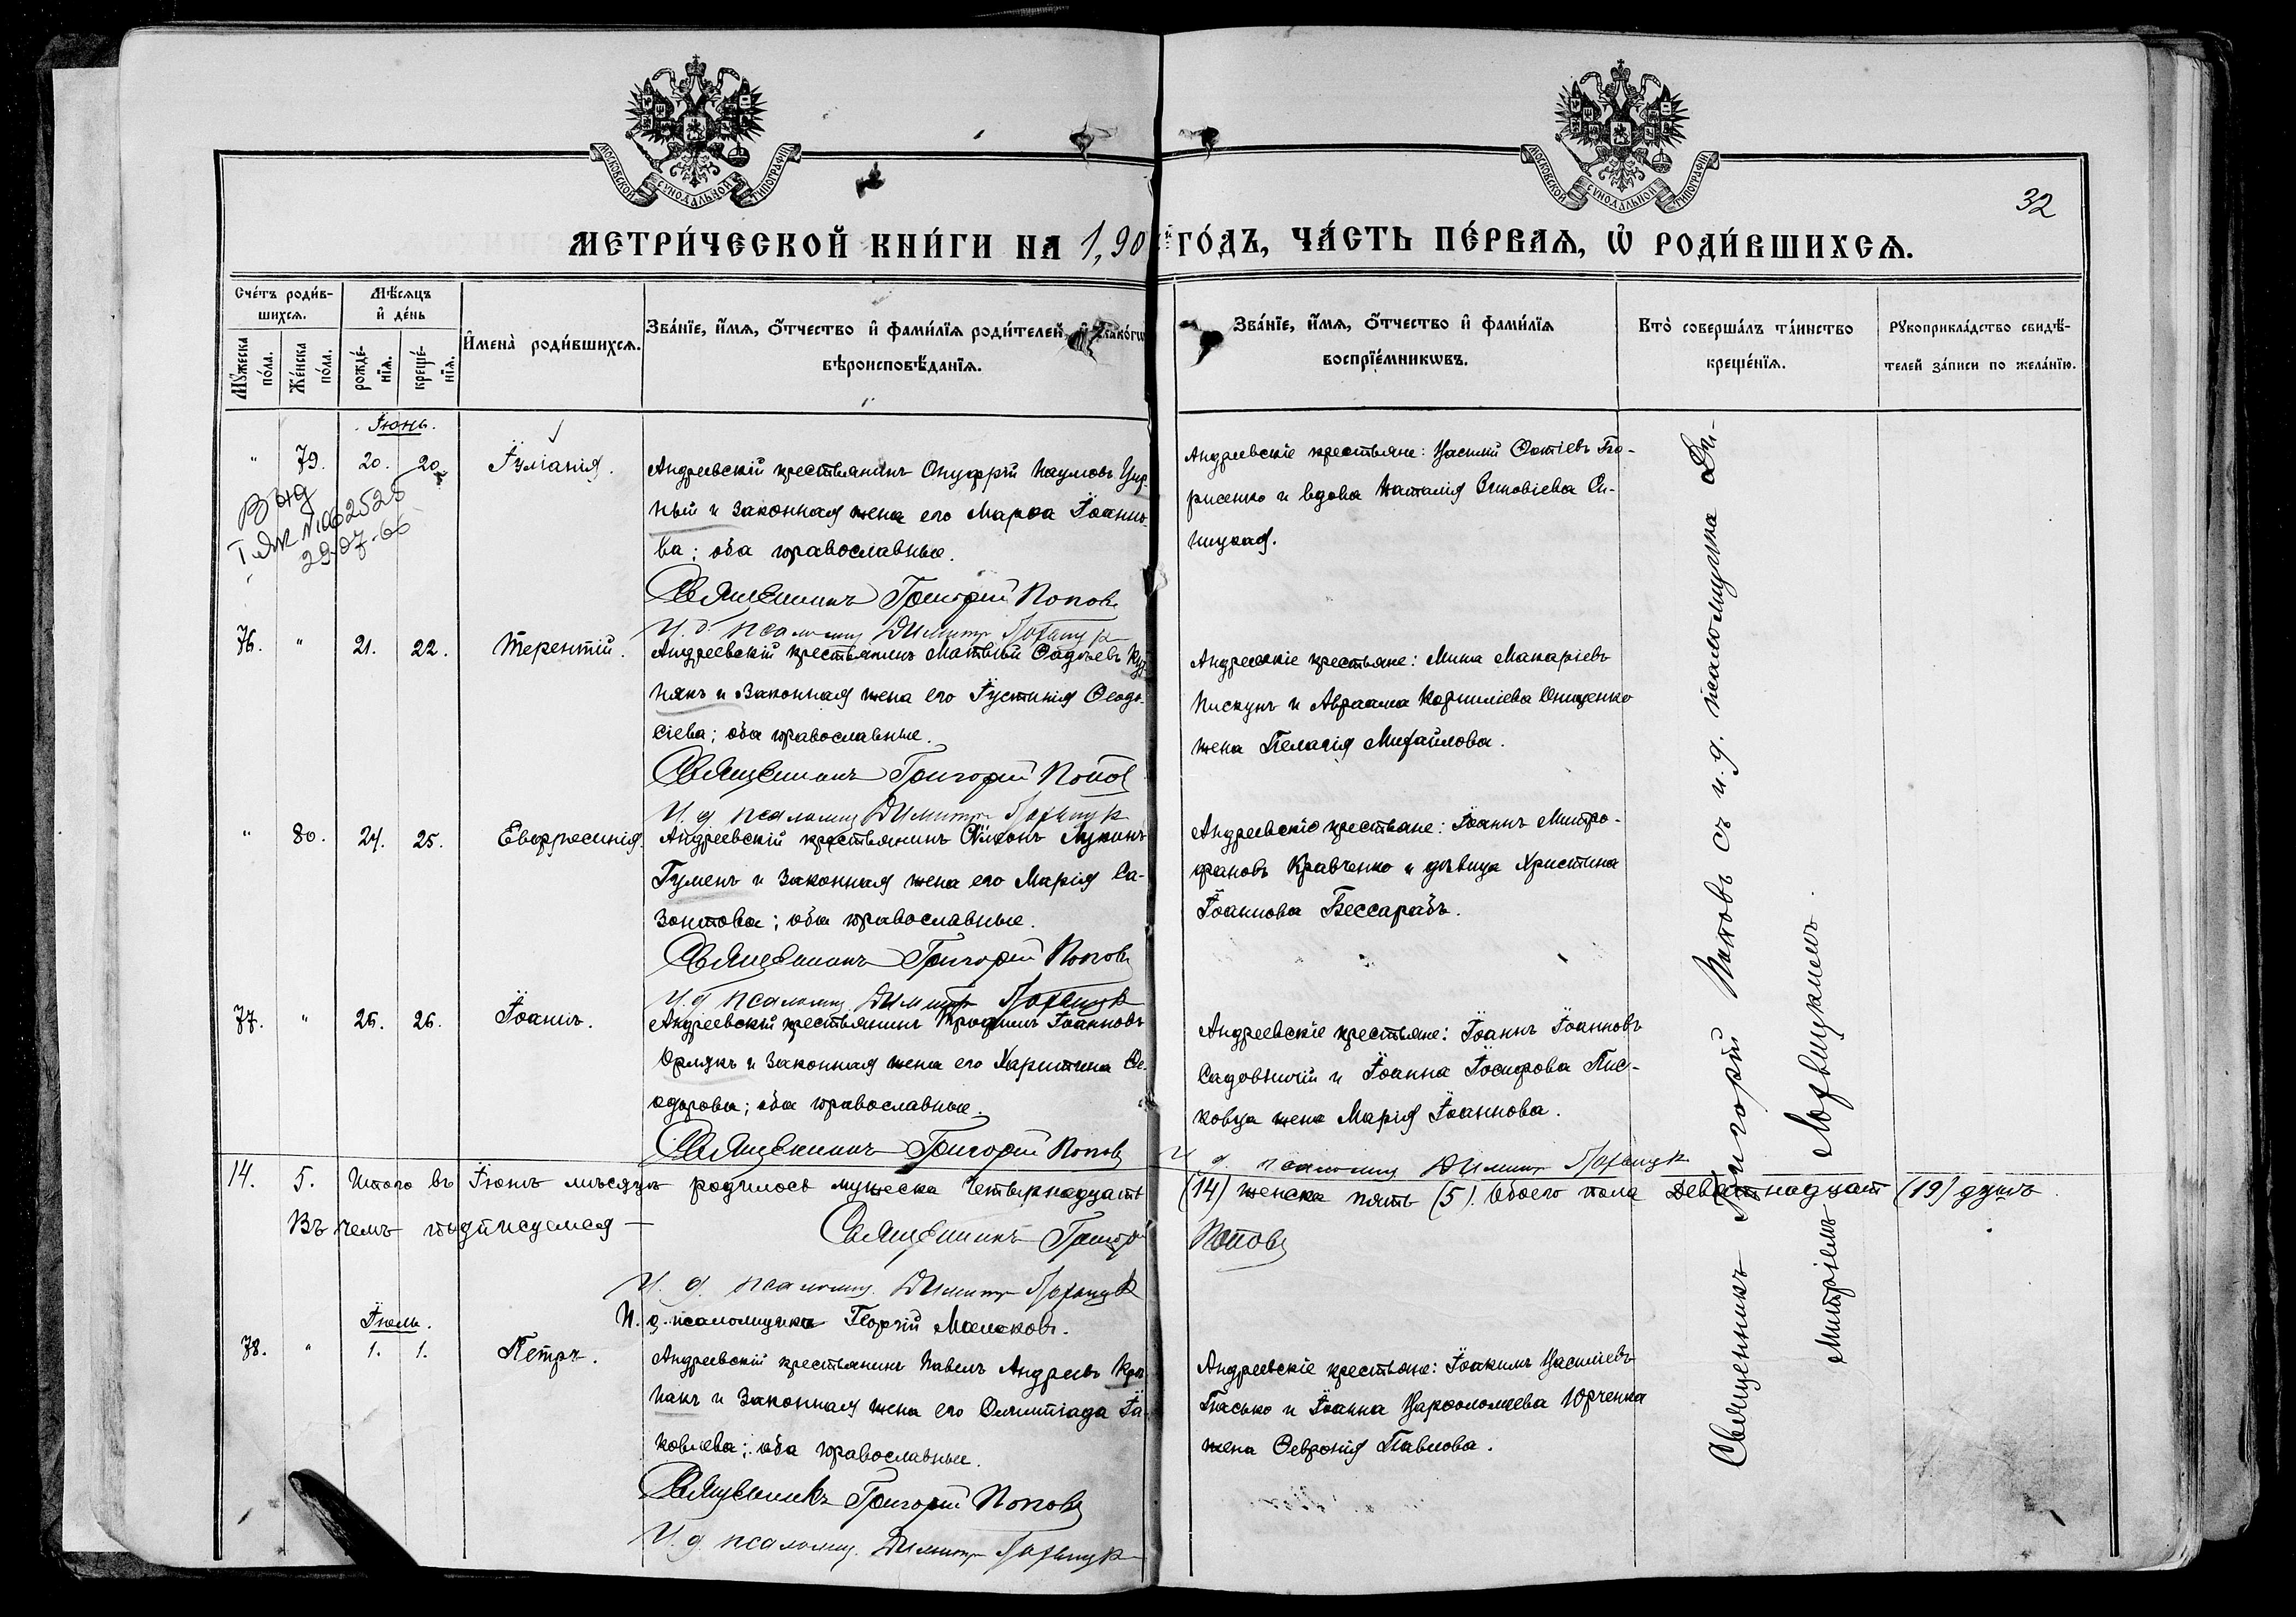 МОСКОВСКОЙ СУНОДАЛЬНОЙ ТИПОГРАФІИ
МОСКОВСКОЙ СУНОДАЛЬНОЙ ТИПОГРАФІИ
32
МЕТРИ́ЧЕСКОЙ КНИ́ГИ НА 1,90 ГО́ДЪ, ЧА́СТЬ ПЕ́РВАЯ, Ѡ҆ РОДИ́ВШИХСѦ.
Сче́тъ роди́в-
шихсѧ.
Мѣ́сѧцъ
и҆ де́нь
Мꙋ́жеска
по́ла.
Же́нска
по́ла.
рожде́-
нїѧ.
креще́-
нїѧ.
И҆мена̀ роди́вшихсѧ.
Зва́нїе, и҆́мѧ, ѻ҆́тчество и҆ фами́лїѧ роди́телей, и҆ како́гѡ
вѣроисповѣ́данїѧ.
Зва́нїе, и҆́мѧ, ѻ҆́тчество и҆ фами́лїѧ
воспрїе́мникѡвъ.
Кто̀ соверша́лъ та́инство
креще́нїѧ.
Рꙋкоприкла́дство свидѣ́-
телей за́писи по жела́нїю.
Іюнь.
" 79. 20. 20. Іуліанія.
Андреевскій крестьянинъ Онуфрій Наумовъ
ный и законная жена его Марѳа Іоанно-
ва; оба православные.
Священникъ Григорій Поповъ
И. д. псаломщ Димитр
Андреевскіе крестьяне: Василій Фотіевъ Бо-
рисенко и вдова Наталія Зиновіева Си-
ницкая.
29-07-66
76. " 21. 22. Терентій.
Андреевскій крестьянинъ Матвѣй
някъ и законная жена его Іустинія Ѳеодо-
сіева; оба православные.
Священникъ Григорій Поповъ
И. д. псаломщ Димитр
Андреевскіе крестьяне: Мина Макаріевъ
Пискунъ и Авраама Корнилиева Онищенко
жена Пелагія Михайлова.
" 80. 24. 25. Евфросинія.
Андреевскій крестьянинъ Симеонъ Лукинъ
Гуменъ и законная жена его Марія Са-
зонтова; оба православные.
Священникъ Григорій Поповъ
И. д. псаломщ Димитр
Андреевскіе крестьяне: Іоаннъ Митро-
фановъ Кравченко и дѣвица Христина
Іоаннова Бессарабъ.
77. " 25. 26. Іоаннъ.
Андреевскій крестьянинъ Трофимъ Іоанновъ
Орлякъ и законная жена его Харитина
одорова; оба православные.
Священникъ Григорій Поповъ
И д. псаломщ Димитр
Андреевскіе крестьяне: Іоаннъ Іоанновъ
Садовничій и Іоанна Іосифова Пис-
ковца жена Марія Іоаннова.
14. 5. Итого въ Іюнѣ мѣсяцѣ родилось мужеска четырнадцать (14) женска пять (5). Обоего пола девятнадцат (19) душъ.
Въ чемъ подписуемся —
Священникъ Григорі Поповъ
И. д. псаломщ. Димитр
И. д. псаломщика Георгій
Іюль.
78. " 1. 1. Петръ.
Андреевскій крестьянинъ Павелъ Андреевъ
накъ и законная жена его Олимпіада Іа-
ковлева; оба православные.
Священникъ Григорій Поповъ
И. д. псаломщ. Димитр
Андреевскіе крестьяне: Іоакимъ Василіевъ
Пасько и Іоанна Варфоломеева Юрченка
жена Февронія Павлова.
Священникъ Григорій Поповъ съ и. д. псаломщика Ди-
митріемъ